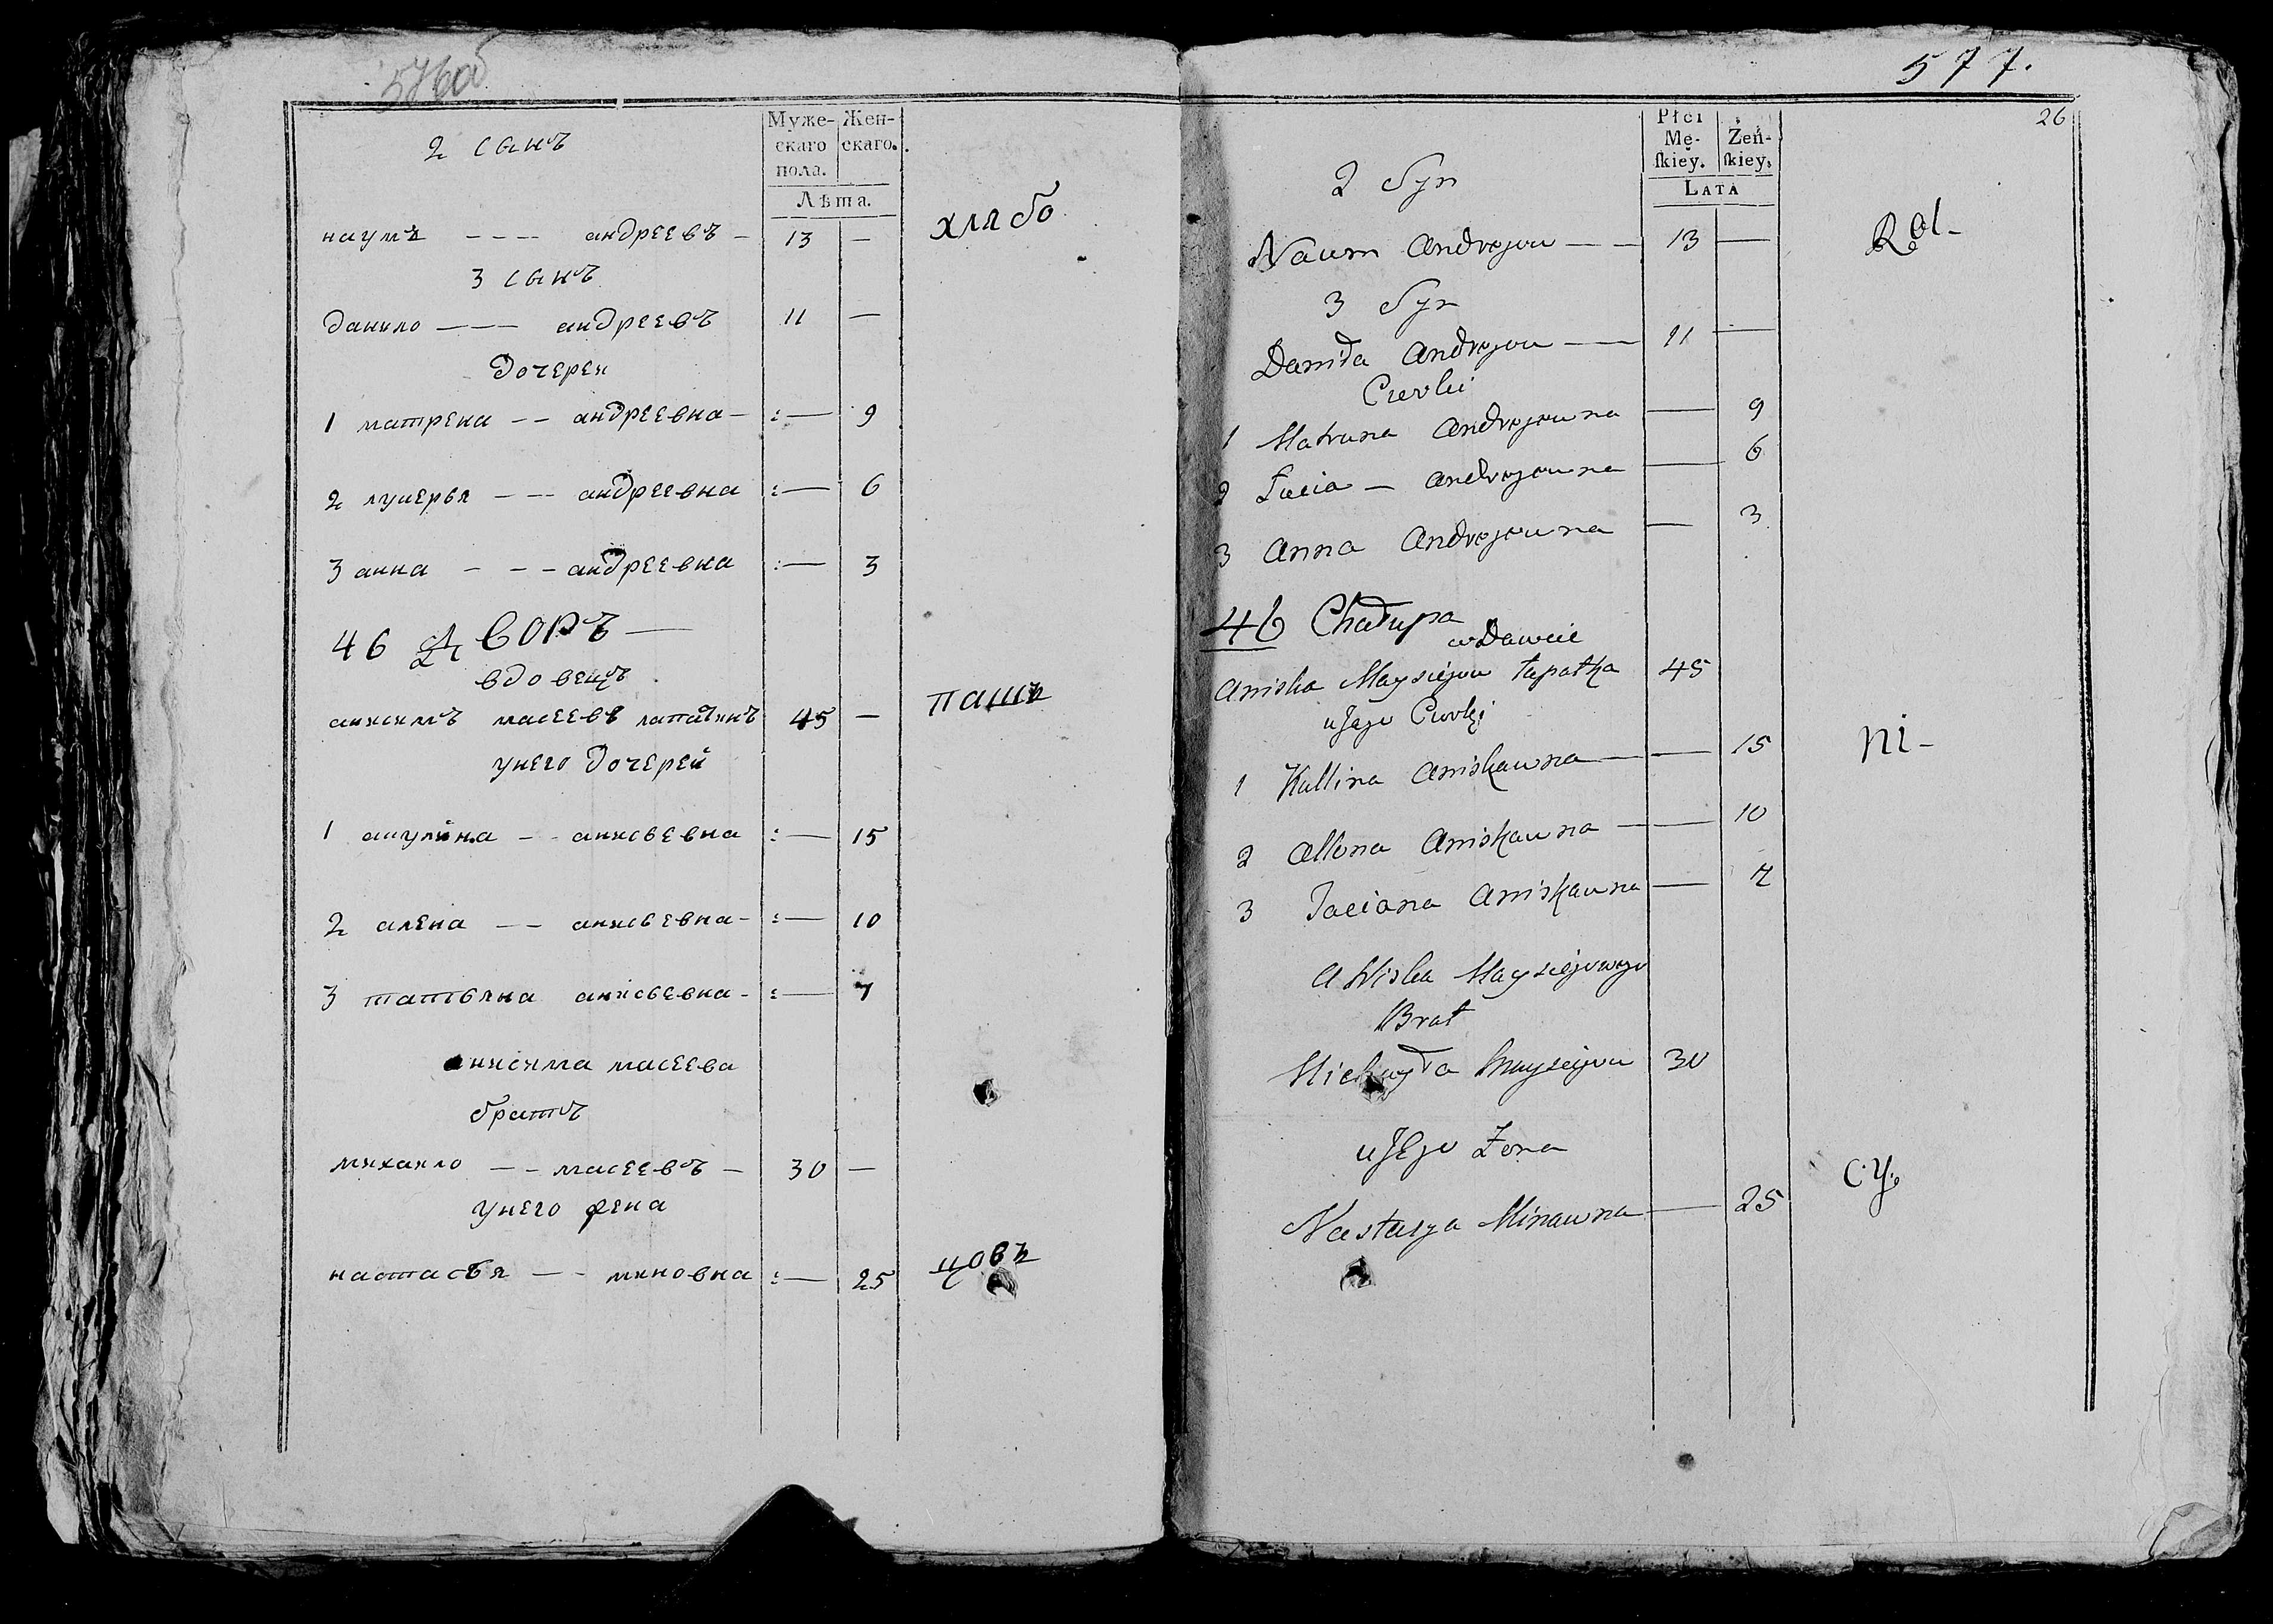 576об
Муже-
скаго
пола.
Жен-
скаго.
Лѣта.
2 сынъ
наумъ ---- андреевъ - 13 -
хлѣбо
3 сынъ
данило --- андреевъ 11 -
дочереи
1 матрена -- андреевна - :- 9
2 лукерья --- андреевна :- 6
3 анна --- андреевна :- 3
46 дворъ -
вдовецъ
анисимъ масеевъ лапаткинъ 45 -
пашъ
унего дочерей
1 акулина -- анисьевна :- 15
2 алена -- анисьевна - :- 10
3 татьяна анисьевна - :- 7
анисима масеева
братъ
михаило -- масеевъ - 30 -
унего жена
настасья -- миновна :- 25
цовъ
577.
26
Płci
Mę-
ſkiey.
Żeń-
ſkiey.
LATA
2 Syn
Naum Andrejow -- 13 -
Rol-
3 Syn
Daniła Andrejow -- 11 -
Curki
1 Matruna Andrejowna - 9
2 Łucia - Andrejowna - 6
3 Anna Andrejowna - 3
46 Chałupa
wdawiec
Aniska Maysiejow Łapatka 45
u Jego Curki
1 Kullina Aniskawna - 15
ni-
2 Allona Aniskawna - 10
3 Taciana Aniskawna - 7
Aniska Maysiejowego
Brat
Michayła Maysiejow 30
u Jego Żona
Nastasya Minawna - 25
cy.